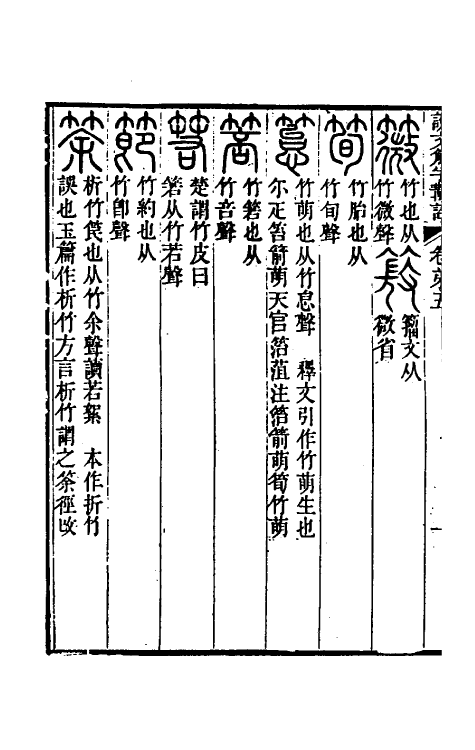 卷弟五
一
薇 竹也从竹微聲 籒文从微省
筍 竹胎也从竹旬聲
䈚 竹萌也从竹怠聲 釋文引作竹萌生也尒疋箈箭萌天官箈菹注箈箭萌筍竹萌
䈏 竹箬也从竹音聲
箬 楚謂竹皮曰箬从竹若聲
節 竹約也从竹卽聲
筡 析竹笢也从竹余聲讀若絮 本作折竹誤也玉篇作析竹方言析竹謂之筡徑改